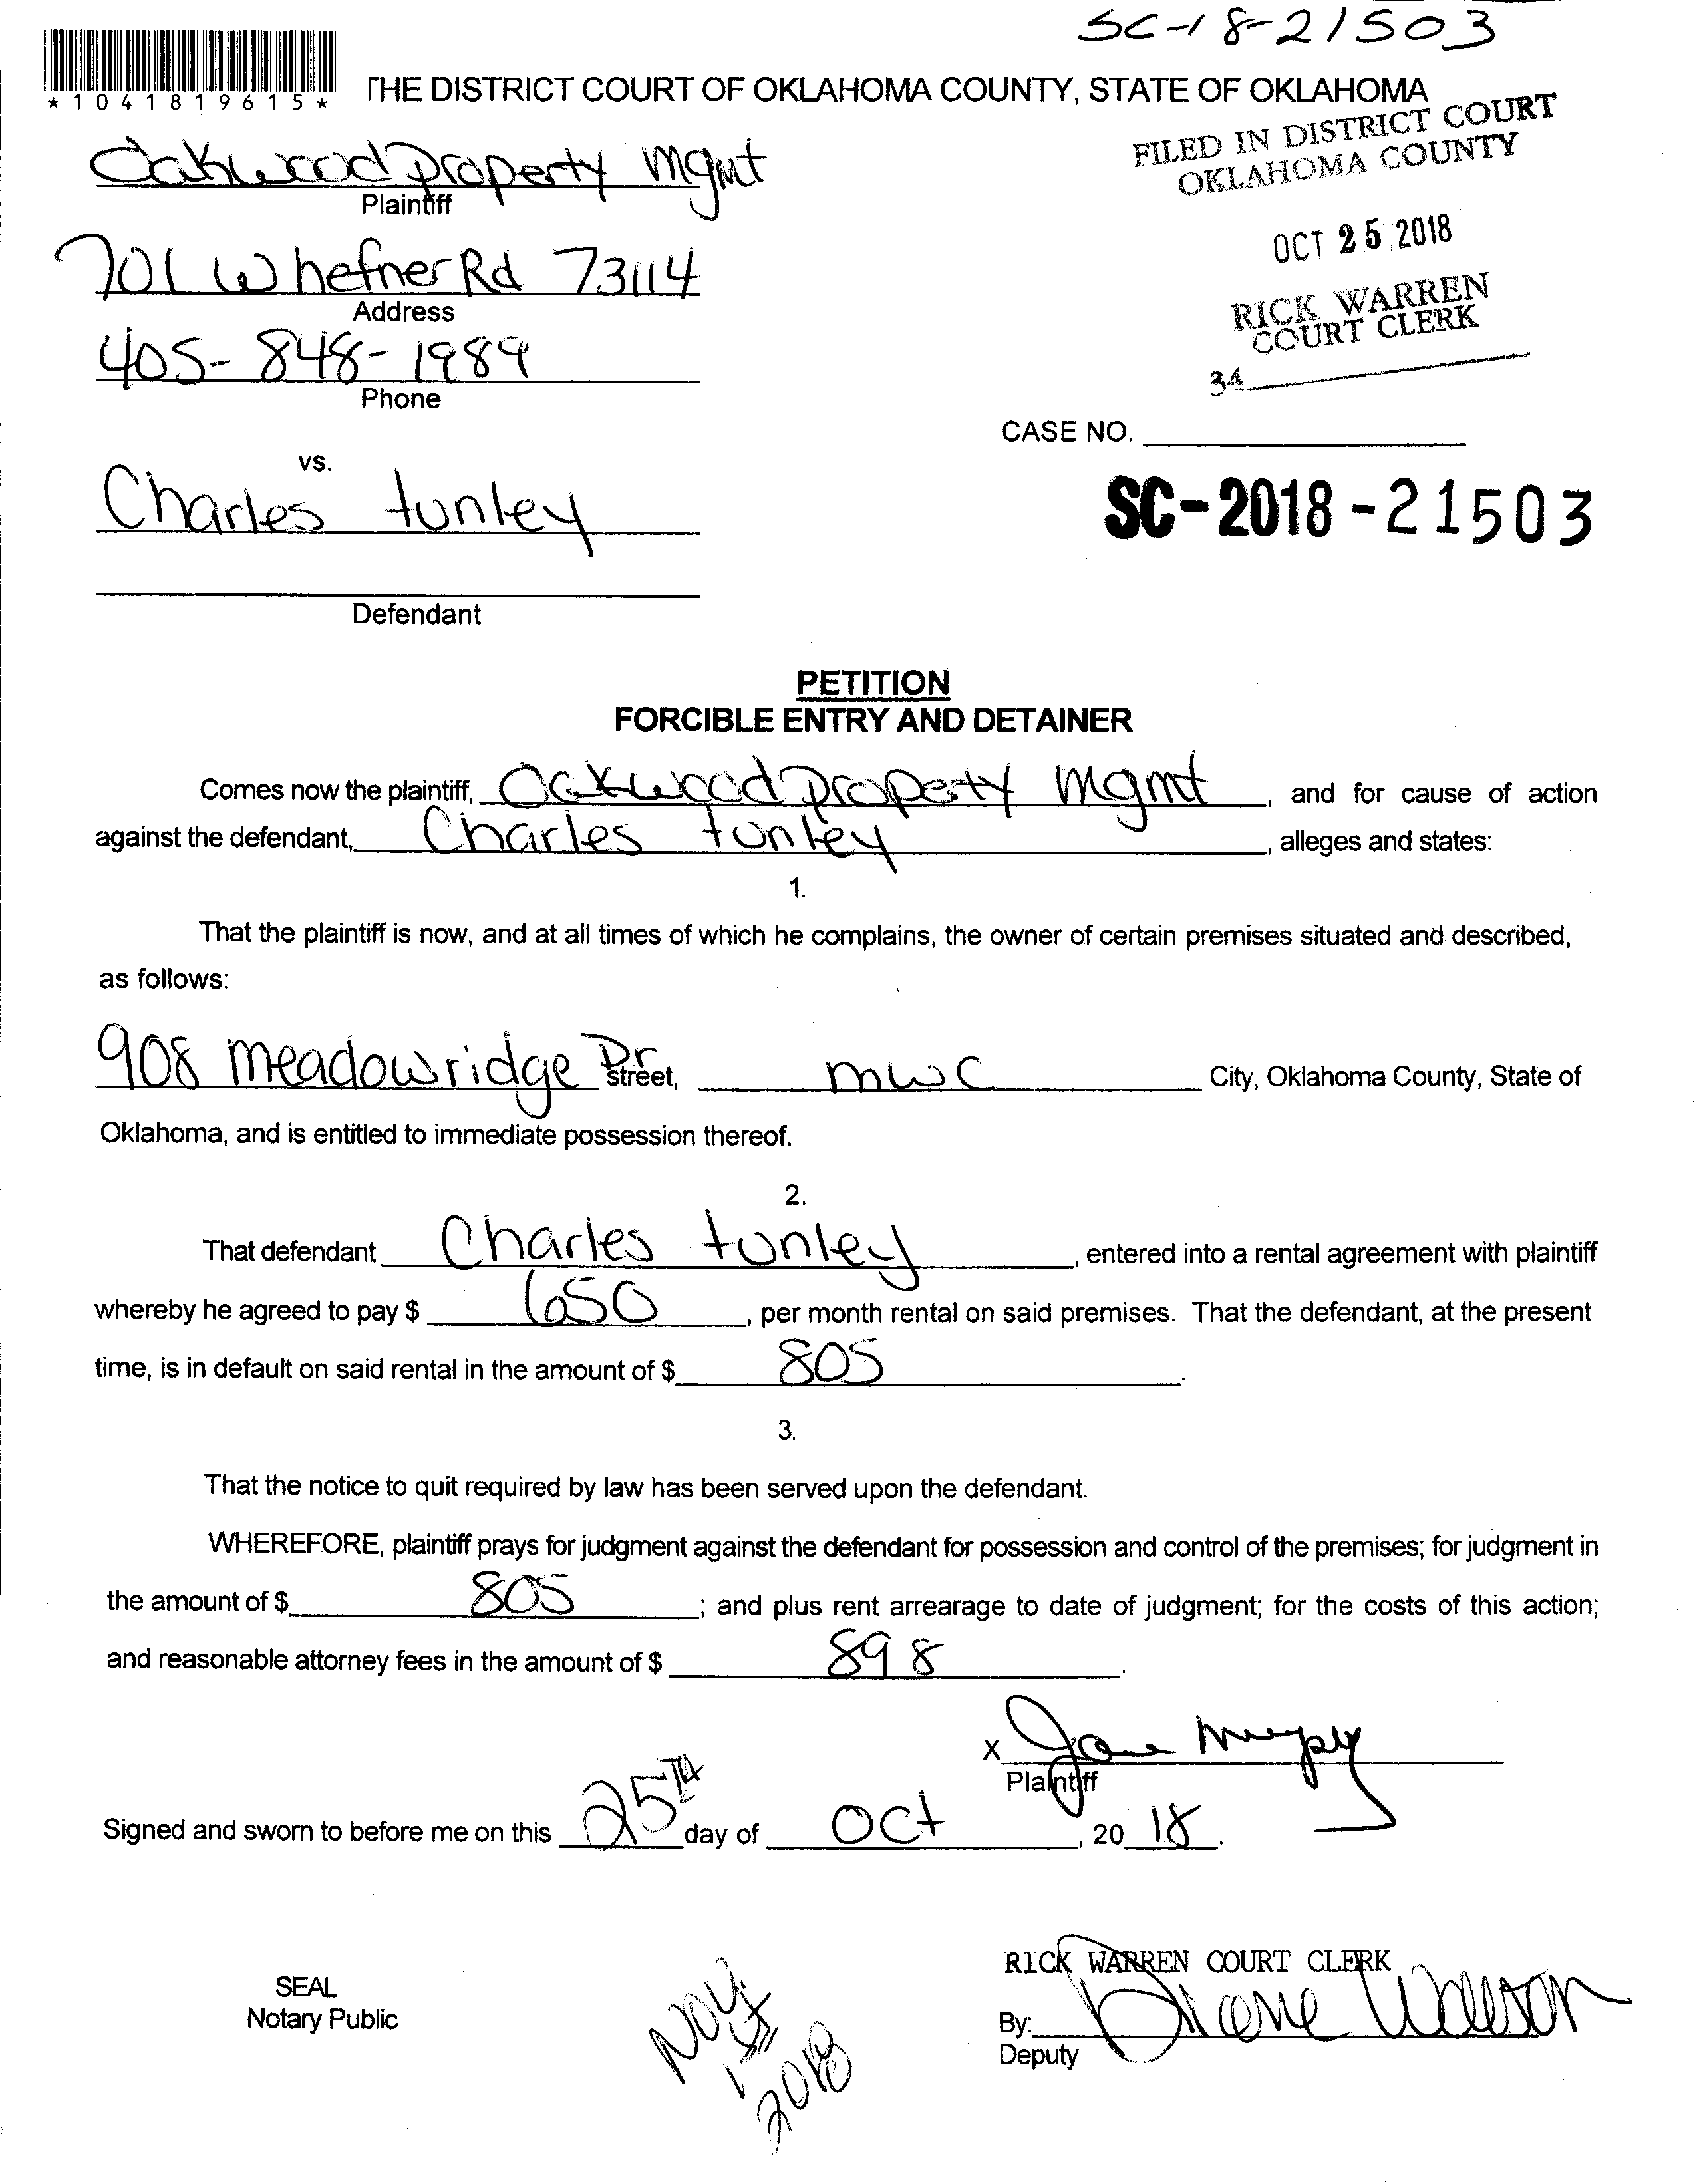 SC-18-21503
*1041819615*
THE DISTRICT COURT OF OKLAHOMA COUNTY, STATE OF OKLAHOMA
FILED IN DISTRICT COURT
OKLAHOMA COUNTY
OCT 25 2018
RICK WARREN
COURT CLERK
34
Oakwood property mgmt
Plaintiff
701 W hefner Rd 73114
Address
405-848-1989
Phone
CASE NO.
SC-2018-21503
vs.
Charles tunley
Defendant
PETITION
FORCIBLE ENTRY AND DETAINER
Comes now the plaintiff, Oakwood property mgmt, and for cause of action
against the defendant, Charles tunley, alleges and states:
1.
That the plaintiff is now, and at all times of which he complains, the owner of certain premises situated and described,
as follows:
908 meadowridge Dr Street, mwc City, Oklahoma County, State of
Oklahoma, and is entitled to immediate possession thereof.
2.
That defendant Charles tunley, entered into a rental agreement with plaintiff
whereby he agreed to pay $ 650, per month rental on said premises. That the defendant, at the present
time, is in default on said rental in the amount of $ 805.
3.
That the notice to quit required by law has been served upon the defendant.
WHEREFORE, plaintiff prays for judgment against the defendant for possession and control of the premises; for judgment in
the amount of $ 805; and plus rent arrearage to date of judgment; for the costs of this action;
and reasonable attorney fees in the amount of $ 898.
X Jane Murphy
Plaintiff
Signed and sworn to before me on this 25TH day of Oct, 20 18.
SEAL
Notary Public
Nov
1st
2018
RICK WARREN COURT CLERK
By: Diane
Deputy